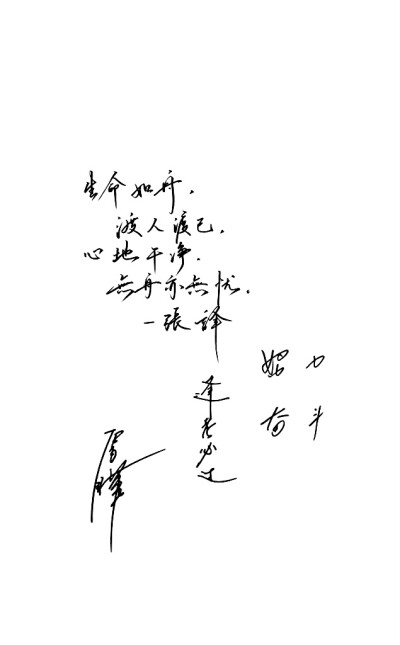 生命如舟，
渡人渡己，
心地干净，
無舟亦無忧。
一張譯
努力
奋斗
逢考必过